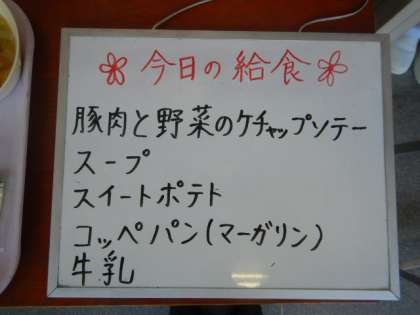 今日の給食
豚肉と野菜のケチャップソテー
スープ
スイートポテト
コッペパン(マーガリン)
牛乳